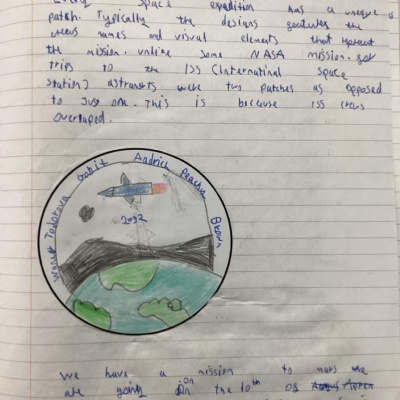 Every space expedition has a unique
patch. Typically the designs features the
crews names and visual elements that represent
the mission. unlike some NASA mission. for
trips to the ISS (International space
station) astronauts were two patches as opposed
to Just one. This is because ISS crews
overlaped.
Todorova Gabit Andrich Peachu Brown
2032
We have a mission to mars we
are going on the 10th of